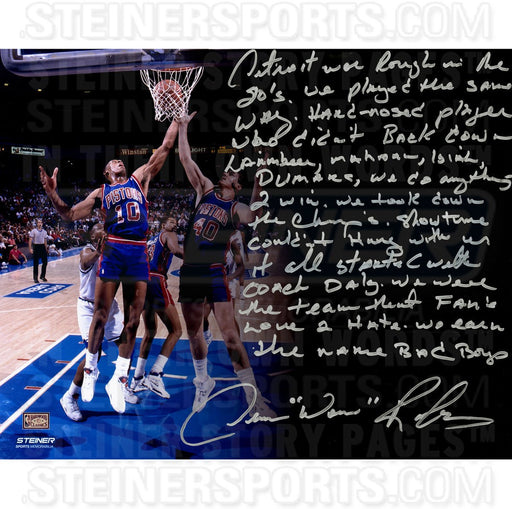 STEINERSPORTS.COM
Detroit was Rough in the
80's. we played the same
way. Hard-nosed player
who didn't Back down
Laimbeer, Mahorn, Isiah,
DUMARS, we do anything
2 win. we took down
the Champ's. Showtime
couldn't Hang with us
It all started with
coach Daly. we were
the team that FAN's
Love 2 Hate. we earn
the name Bad Boys
"Worm"
PISTONS
10
PISTONS
40
Winston
STEINER
SPORTS MEMORABILIA
STEINERSPORTS.COM